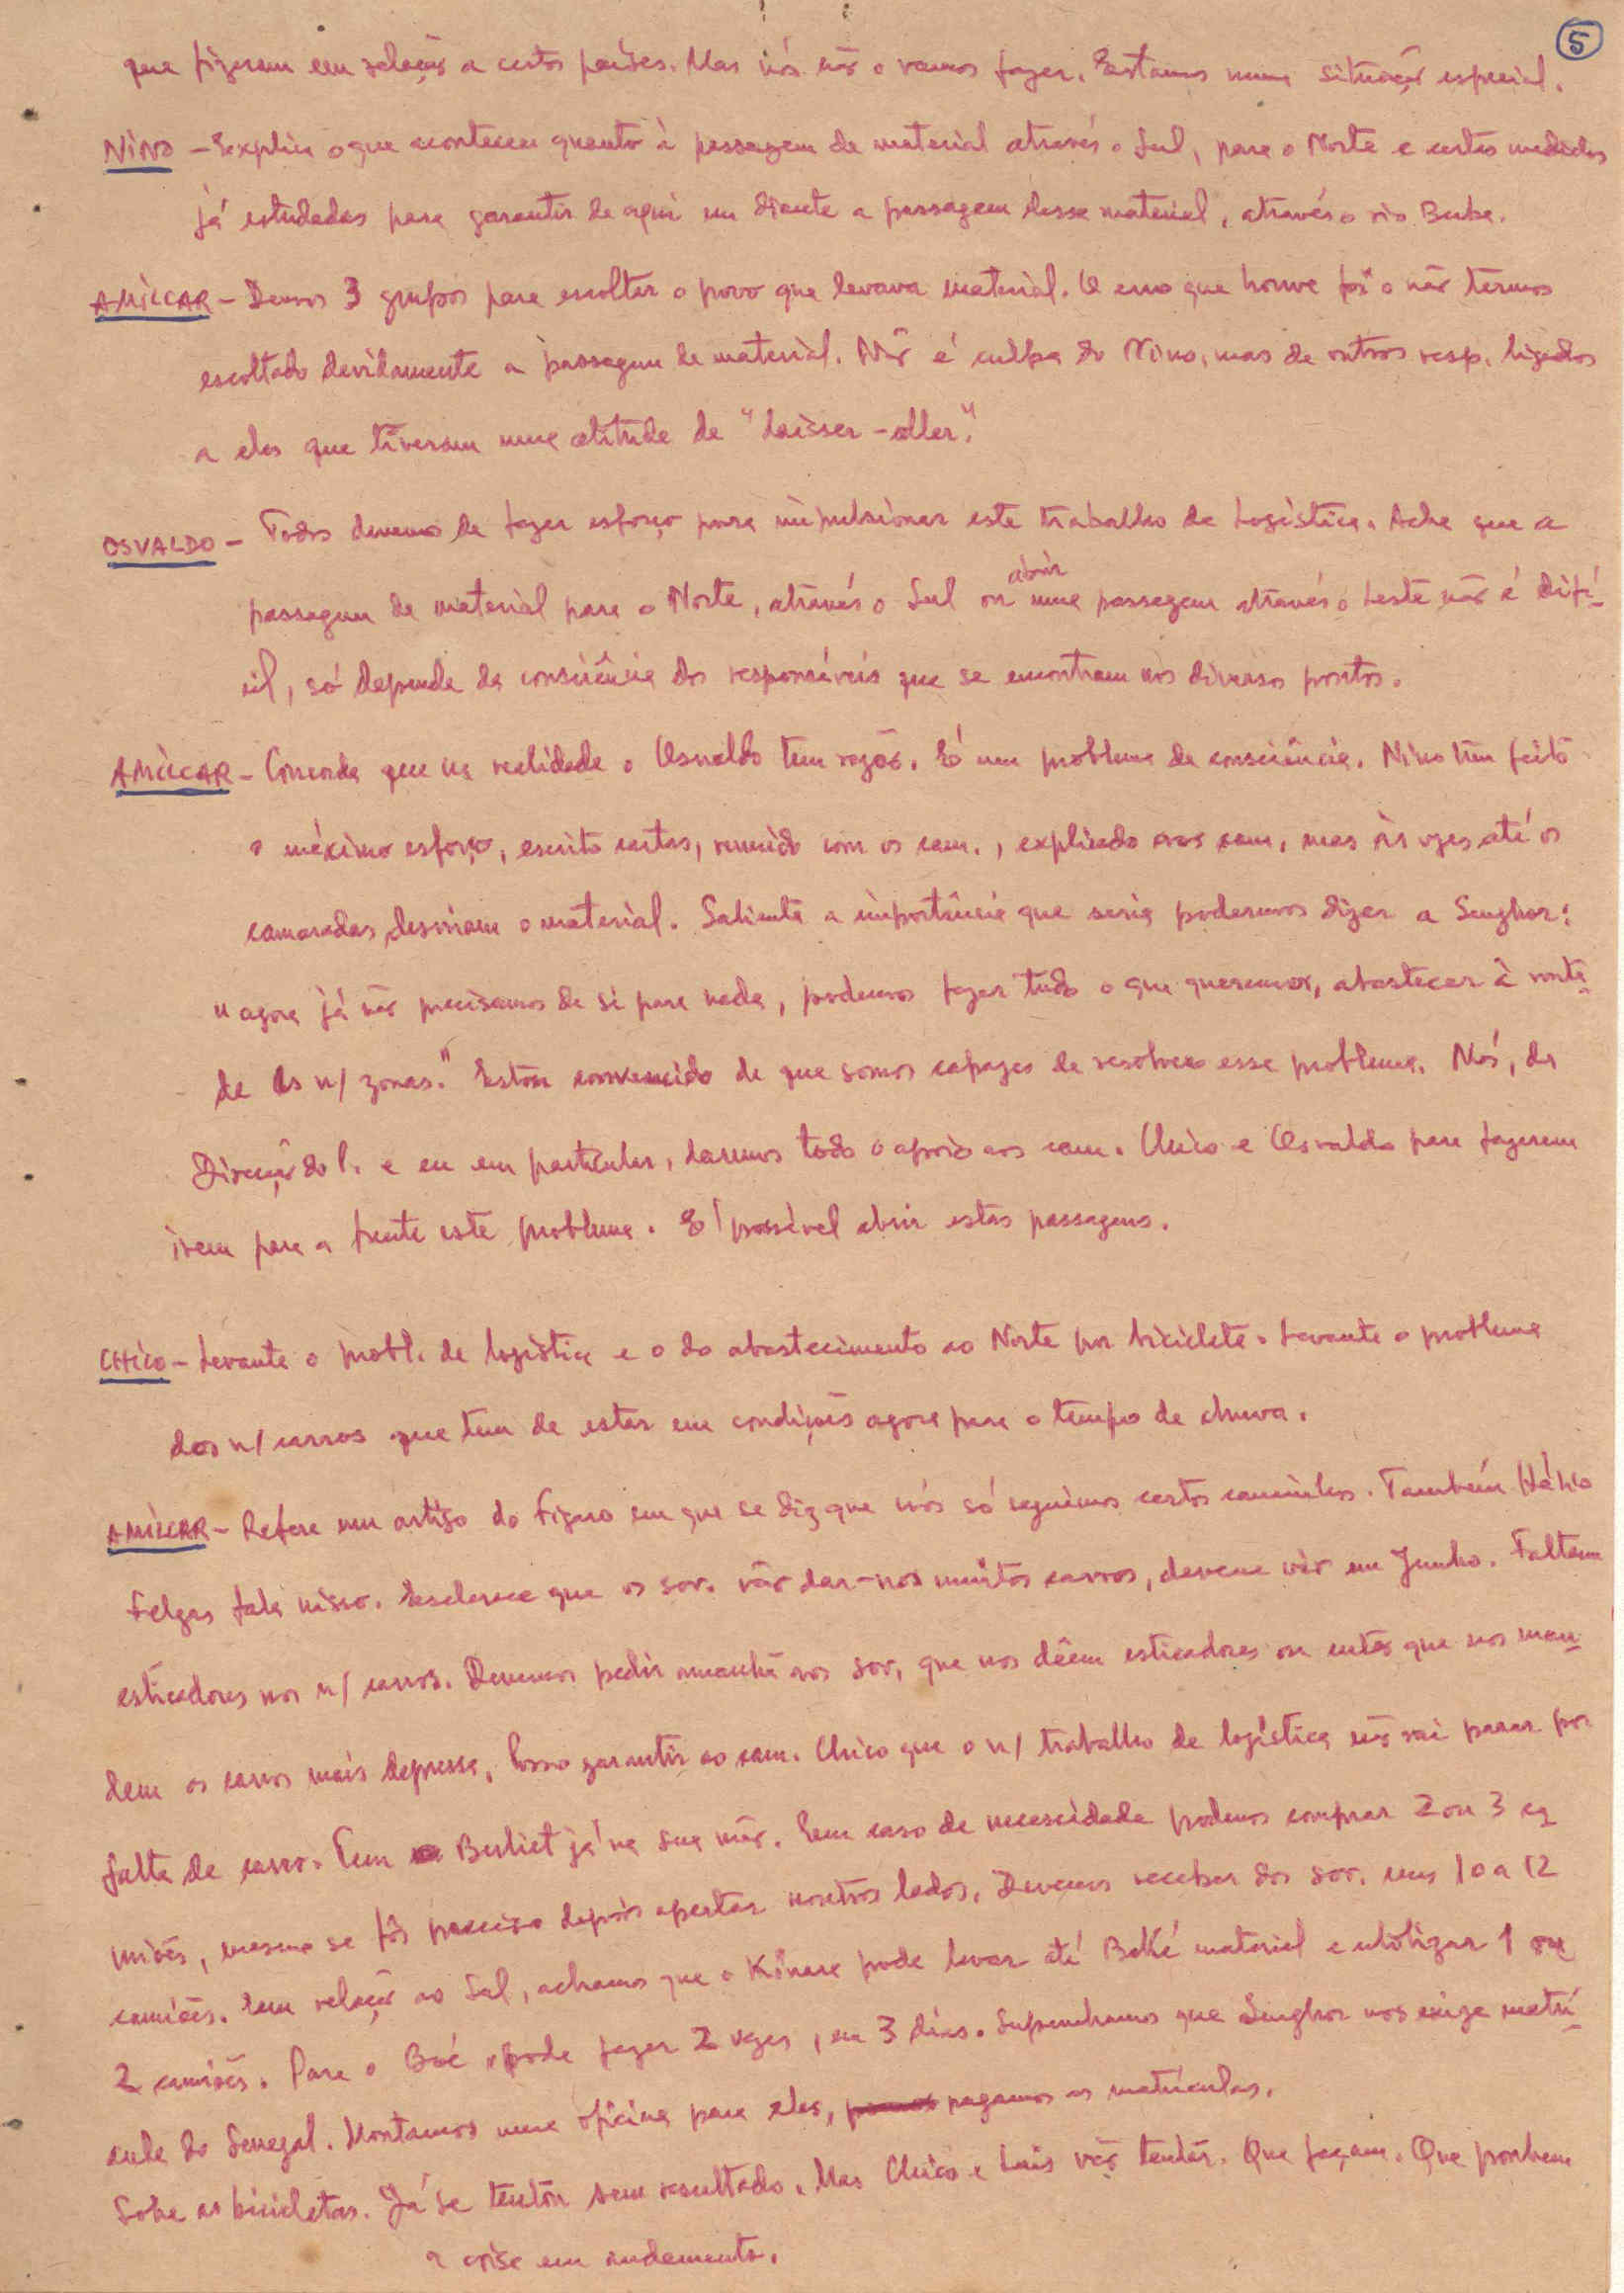 5
que fizeram em relação a certos países. Mas nós não o vamos fazer. Estamos numa situação especial.
NINO - Explica o que aconteceu quanto à passagem de material através o Sul, para o Norte e certas medidas
já estudadas para garantir de aqui em diante a passagem desse material, através o rio Buba.
AMILCAR - Demos 3 grupos para escoltar o povo que levava material. O erro que houve foi o não termos
escoltado devidamente a passagem de material. Não é culpa do Nino, mas de outros resp. ligados
a eles que tiveram uma atitude de "Laisser-aller".
OSVALDO - Todos devemos de fazer esforço para impulsionar este trabalho da Logística. Acha que a
passagem de material para o Norte, através o Sul ou abrir uma passagem através o Leste não é difí-
cil, só depende da consciência dos responsáveis que se encontram nos diversos pontos.
AMILCAR - Concorda que na realidade o Osvaldo tem razão. É um problema de consciência. Nino tem feito
o máximo esforço, escrito cartas, reunido com os cam., explicado aos cam, mas às vezes até os
camaradas desviam o material. Salienta a importância que seria podermos dizer a Senghor:
"agora já não precisamos de si para nada, podemos fazer tudo o que queremos, abastecer à vonta-
de as n/ zonas." Estou convencido de que somos capazes de resolver esse problema. Nós, da
Direcção do P. e eu em particular, daremos todo o apoio aos cam. Chico e Osvaldo para fazerem
irem para a frente este problema. É possível abrir estas passagens.
CHICO - Levanta o probl. de logística e o do abastecimento ao Norte por bicicleta. Levanta o problema
dos n/ carros que tem de estar em condições agora para o tempo de chuva.
AMILCAR - Refere um artigo do Figaro em que se diz que nós só seguimos certos caminhos. Também Hélio
Felgas fala nisso. Esclarece que os sov. vão dar-nos muitos carros, devem vir em Junho. Faltam
esticadores nos n/ carros. Devemos pedir amanhã aos sov, que nos dêem esticadores ou então que nos man-
dem os carros mais depressa. Posso garantir ao cam. Chico que o n/ trabalho de logística não vai parar por
falta de carro. Tem Berliet já na sua mão. Em caso de necessidade podemos comprar 2 ou 3 ca
miões, mesmo se fôr preciso depois apertar noutros lados. Devemos receber dos sov. uns 10 a 12
camiões. Em relação ao Sul, achamos que o Kinara pode levar até Boké material e utilizar 1 ou
2 camiões. Para o Boé pode fazer 2 vezes, em 3 dias. Suponhamos que Senghor nos exige matrí-
cula do Senegal. Montamos uma oficina para eles, pagamos as matrículas.
Sobre as bicicletas. Já se tentou sem resultado. Mas Chico e Luís vão tentar. Que façam. Que ponham
a coisa em andamento.